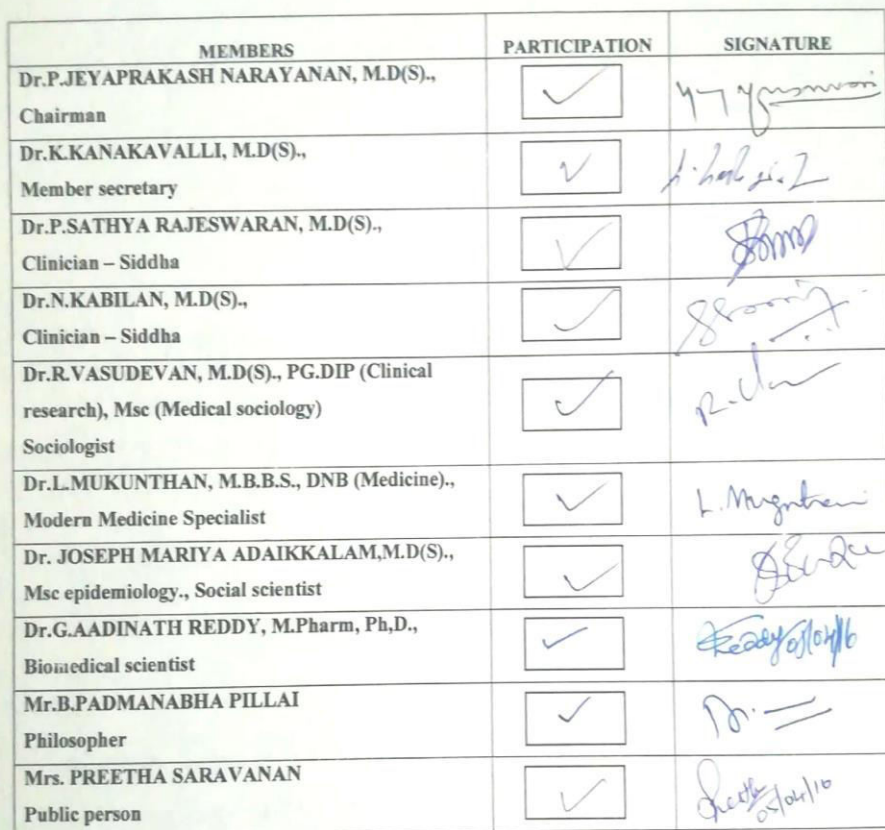 MEMBERS PARTICIPATION SIGNATURE
Dr.P.JEYAPRAKASH NARAYANAN, M.D(S).,
Chairman
Dr.K.KANAKAVALLI, M.D(S).,
Member secretary
Dr.P.SATHYA RAJESWARAN, M.D(S).,
Clinician – Siddha
Dr.N.KABILAN, M.D(S).,
Clinician – Siddha
Dr.R.VASUDEVAN, M.D(S)., PG.DIP (Clinical
research), Msc (Medical sociology)
Sociologist
Dr.L.MUKUNTHAN, M.B.B.S., DNB (Medicine).,
Modern Medicine Specialist
Dr. JOSEPH MARIYA ADAIKKALAM,M.D(S).,
Msc epidemiology., Social scientist
Dr.G.AADINATH REDDY, M.Pharm, Ph,D.,
Biomedical scientist
Mr.B.PADMANABHA PILLAI
Philosopher
Mrs. PREETHA SARAVANAN
Public person
05/04/16